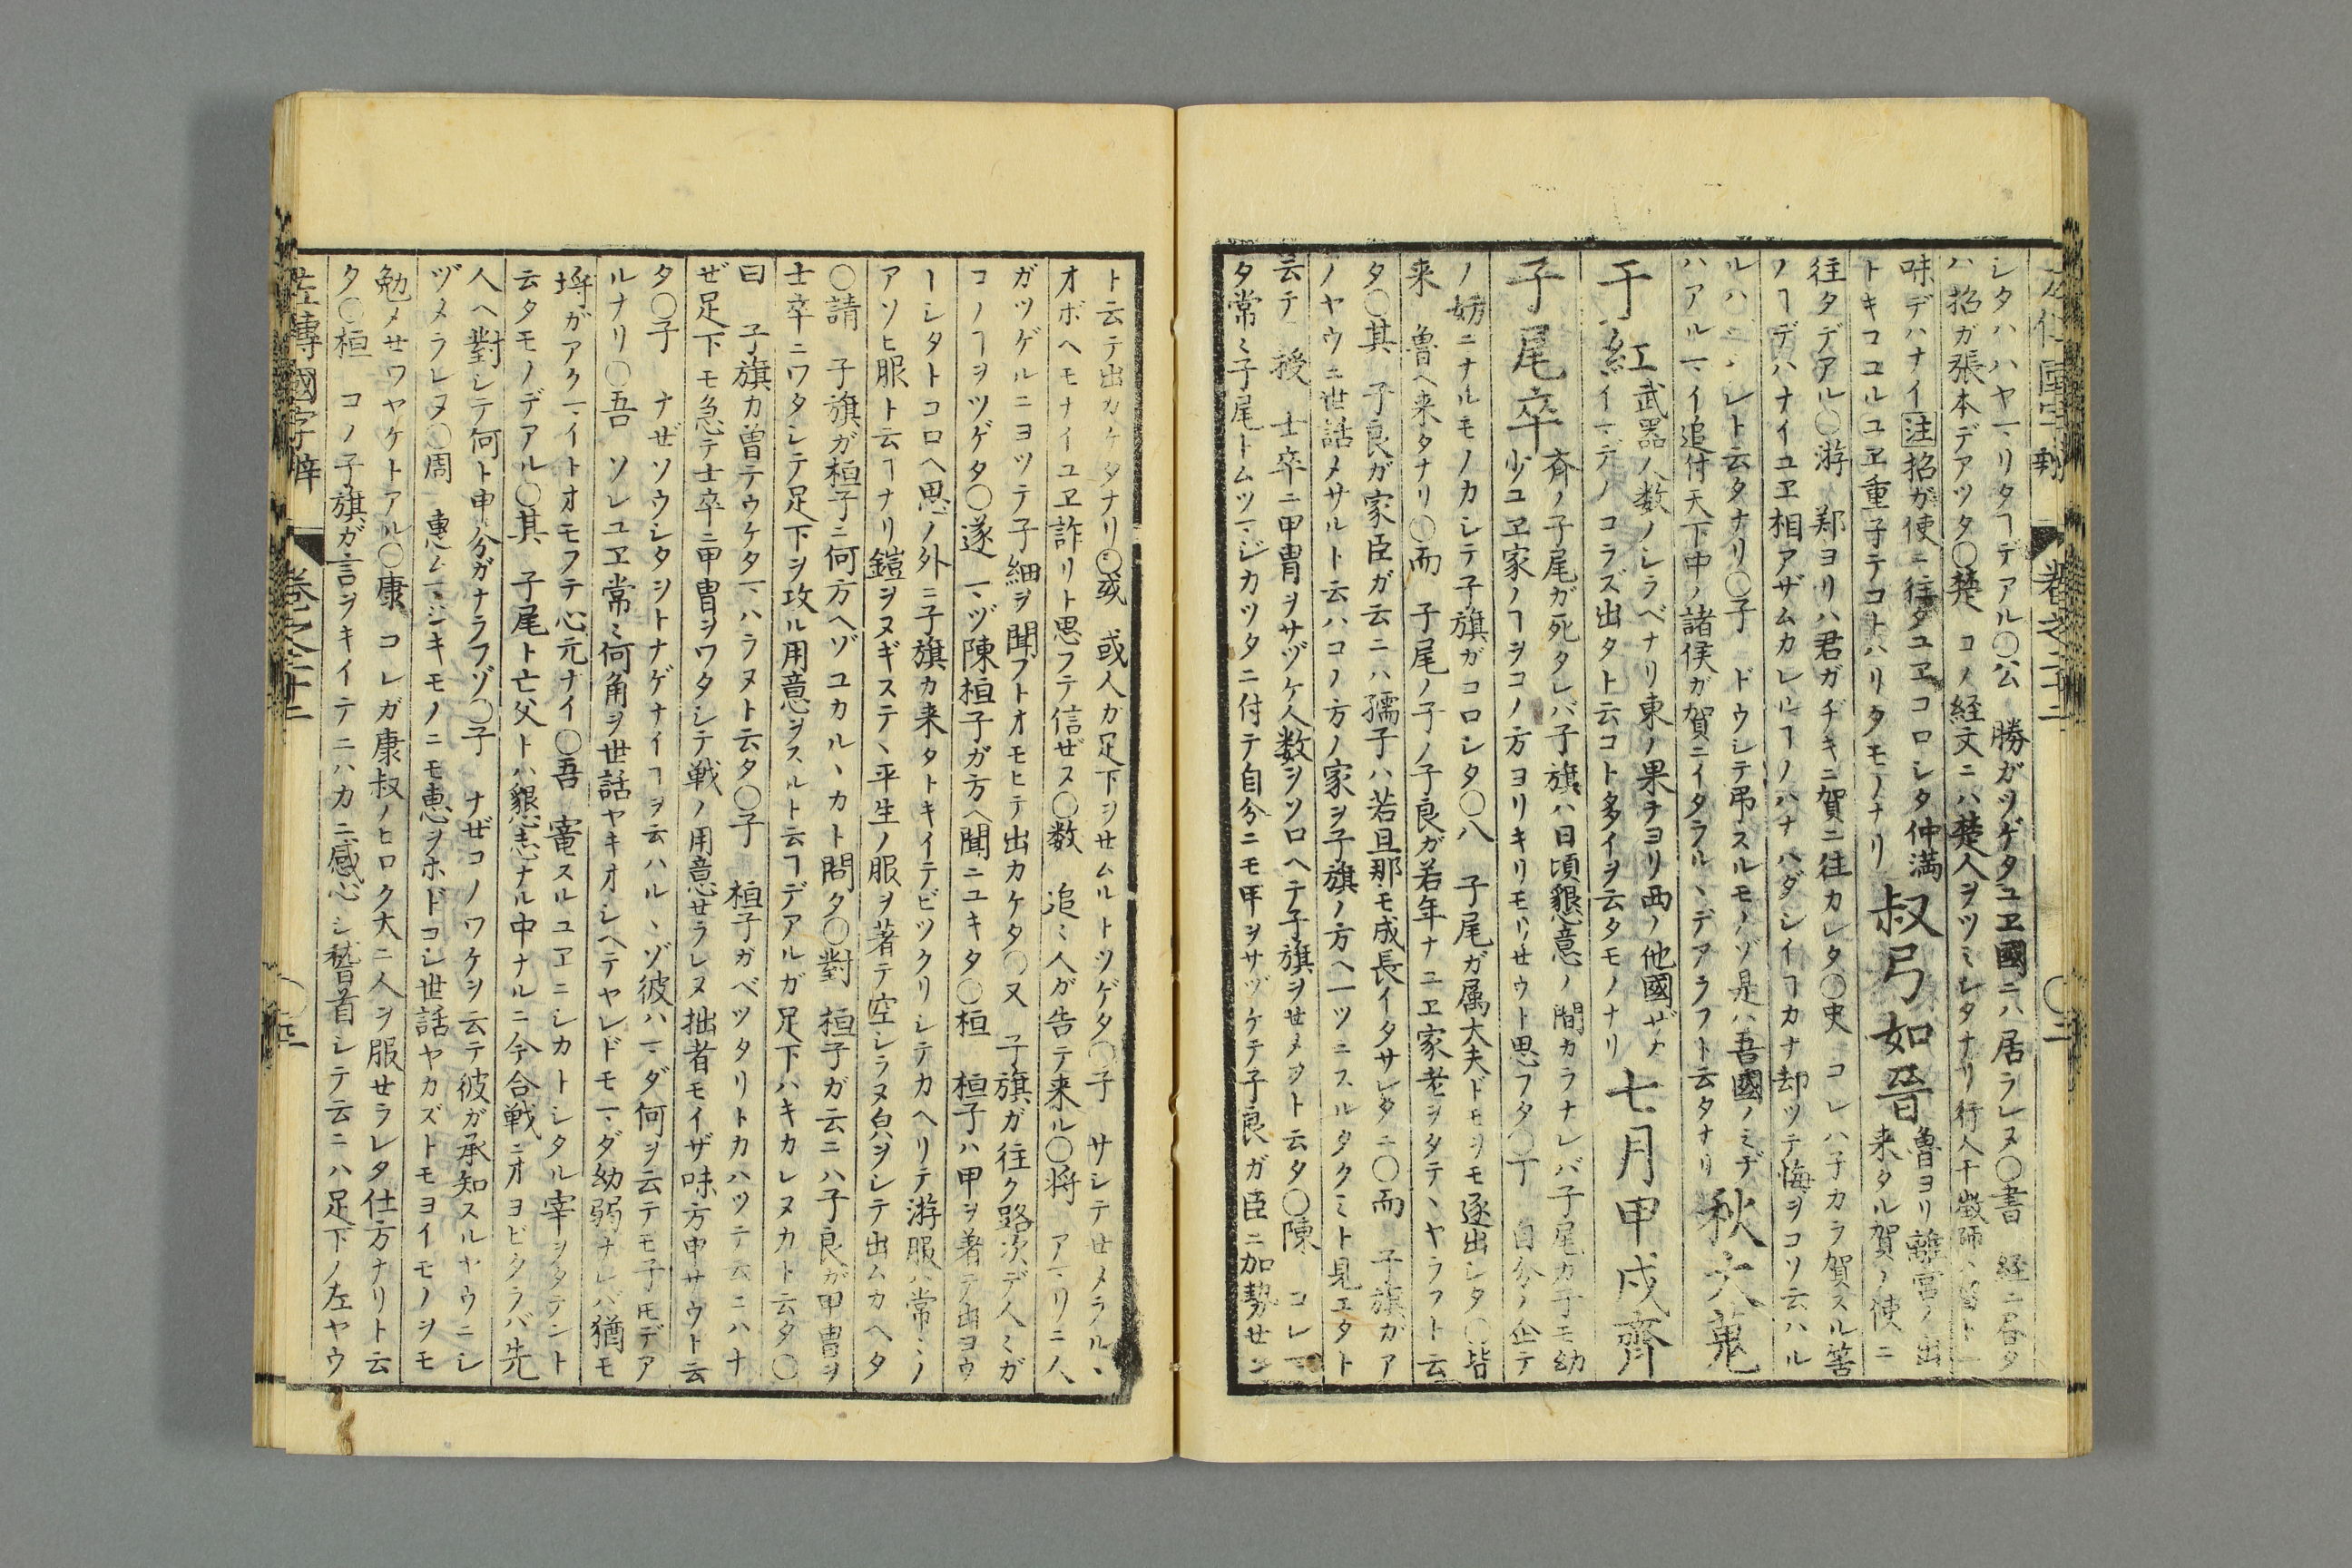 シタハハヤマリタヿデアル○公　勝ガツゲタユヱ國ニハ居ラレヌ○書　経ニ書タ
ハ招ガ張本デアツタ○楚　コノ経文ニハ楚人ヲツミシタナリ行人干徴師ハ皆ト一
味デハナイ注招ガ使ニ往タユヱコロシタ仲満
トキコユルユヱ重子テコトハリタモノナリ
叔弓如晉
魯ヨリ離宮ノ出
来タル賀ノ使ニ
往タデアル○游　鄭ヨリハ君ガヂキニ賀ニ往カレタ○史　コレハ子カラ賀スル筈
ノヿデハナイユヱ相アザムカレルヿノハナハダシイヿカナ却ツテ悔ヲコソ云ハル
ルハヅノレト云タナリ○子　ドウシテ弔スルモノゾ是ハ吾國ノミデ
ハアルマイ追付天下中ノ諸侯ガ賀ニイタラルヽデアラフト云タナリ
秋大蒐
于紅
武器ノ数ノシラベナリ東ノ果テヨリ西ノ他國ザカ
イマデノコラズ出タト云コト多イヲ云タモノナリ
七月甲戌齊
子尾卒
斉ノ子尾ガ死タレバ子旗ハ日頃懇意ノ間カラナレバ子尾カ子モ幼
少ユヱ家ノヿヲコノ方ヨリキリモリセウト思フタ○丁　自分ノ企テ
ノ妨ニナルモノカシテ子旗ガコロシタ○八　子尾ガ属大夫ドモヲモ逐出シタ○皆
来　魯ヘ来タナリ○而　子尾ノ子ノ子良ガ若年ナユヱ家老ヲタテヽヤラフト云
タ○其　子良ガ家臣ガ云ニハ孺子ハ若旦那モ成長イタサレタニ○而　子旗ガア
ノヤウニ世話メサルト云ハコノ方ノ家ヲ子旗ノ方ヘ一ツニスルタクミト見エタト
云テ　授　士卒ニ甲冑ヲサヅケ人数ヲソロヘテ子旗ヲセメヲト云タ○陳　コレマ
タ常ミ子尾トムツマジカツタニ付テ自分ニモ甲ヲサヅケテ子良ガ臣ニ加勢セン
ト云テ出カケタナリ○或　或人カ足下ヲセムルトツゲタ○子　サシテセメラルヽ
オボヘモナイユヱ詐リト思フテ信ゼス○数　追ミ人ガ告テ来ル○将　アマリニ人
ガツゲルニヨツテ子細ヲ聞フトオモヒテ出カケタ○又　子旗ガ往ク路次デ人ミガ
コノヿヲツゲタ○遂　マヅ陳桓子ガ方ヘ聞ニユキタ○桓　桓子ハ甲ヲ着テ出ヨウ
ーシタトコロヘ思ノ外ニ子旗カ来タトキイテビツクリシテカヘリテ游服ハ常ミノ
アソヒ服ト云ヿナリ鎧ヲヌギステヽ平生ノ服ヲ著テ空シラヌ皃ヲシテ出ムカヘタ
○請　子旗ガ桓子ニ何方ヘゾユカルヽカト問タ○對　桓子ガ云ニハ子良ガ甲冑ヲ
士卒ニワタシテ足下ヲ攻ル用意ヲスルト云ヿデアルガ足下ハキカレヌカト云タ○
曰　子旗カ曽テウケタマハラヌト云タ○子　桓子ガベツタリトカハツテ云ニハナ
ゼ足下モ急テ士卒ニ甲冑ヲワタシテ戦ノ用意セラレヌ拙者モイザ味方申サウト云
タ○子　ナゼソウシタシトナゲナイヿヲ云ハルヽゾ彼ハマダ何ヲ云テモ子𪜈デア
ルナリ○吾　ソレユヱ常ミ何角ヲ世話ヤキオシヘテヤレドモマダ幼弱ナレバ猶モ
埒ガアクマイトオモフテ心元ナイ○吾　寵スルユヱニシカトシタル宰ヲタテント
云タモノデアル○其　子尾ト亡父トハ懇志ナル中ナルニ今合戦ニオヨビタラバ先
人ヘ對シテ何ト申分ガナラフゾ○子　ナゼコノワケヲ云テ彼ガ承知スルヤウニシ
ヅメラレヌ○周　惠ムマジキモノニモ恵ヲホドコシ世話ヤカズトモヨイモノヲモ
勉メセワヤケトアル○康　コレガ康叔ノヒロク大ニ人ヲ服セラレタ仕方ナリト云
タ○桓　コノ子旗ガ言ヲキイテニハカニ感心シ稽首シテ云ニハ足下ノ左ヤウ
左傳國字辯　巻之二十二